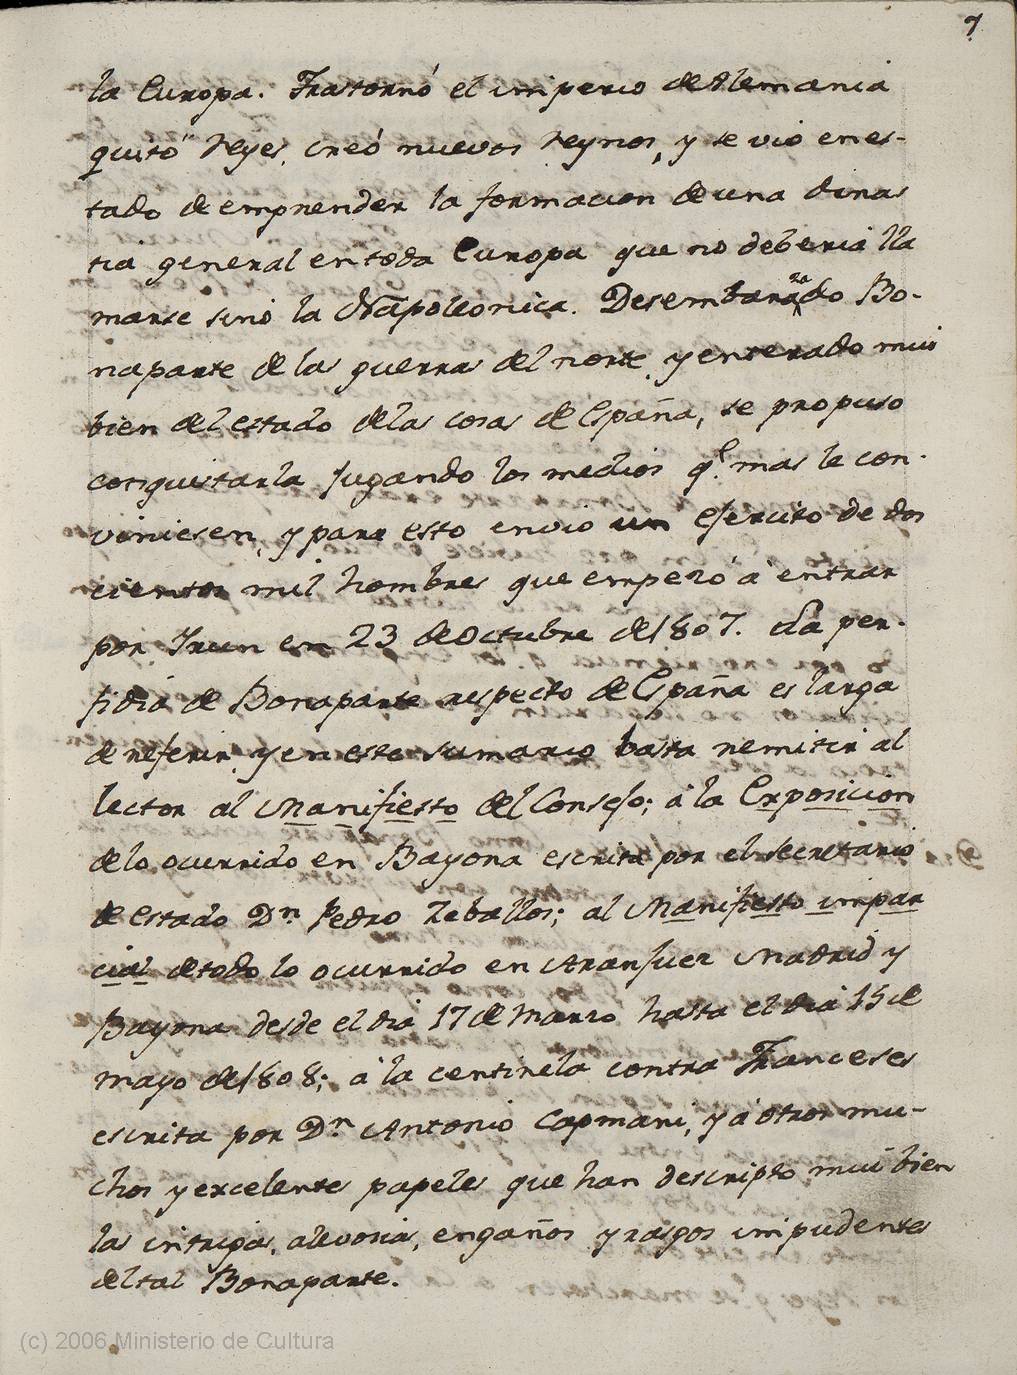 7
la Europa. Trastornó el imperio de Alemania
quitó Reyes, creó nuevos Reynos, y se vio en es-
tado de emprender la formacion de una dinas
tia general en toda Europa que no deberia lla
marse sinó la Napoleonica. Desembaraza^do Bo-
naparte de las guerras del norte, y enterado mui
bien del estado de las cosas de España, se propuso
conquistarla jugando los medios q.e mas le con-
viniesen, y para esto envió un ejercito de dos
cientos mil hombres que empezó á entrar
por Irun en 23 de Octubre de 1807. La per-
fidia de Bonaparte respecto de España es larga
de referir, y en este sumario basta remitir al
lector al Manifiesto del Consejo; á la Exposicion
de lo ocurrido en Bayona escrita por el secretario
de estado D.n Pedro Zeballos; al Manifiesto impar
cial de todo lo ocurrido en Aranjuez Madrid y
Bayona desde el dia 17 de Marzo hasta el dia 15 de
mayo de 1808; á la centinela contra Franceses
escrita por D.n Antonio Capmani, y á otros mu-
chos y excelentes papeles que han descripto mui bien
las intrigas, alevosias, engaños y rasgos impudentes
del tal Bonaparte.
(c) 2006 Ministerio de Cultura